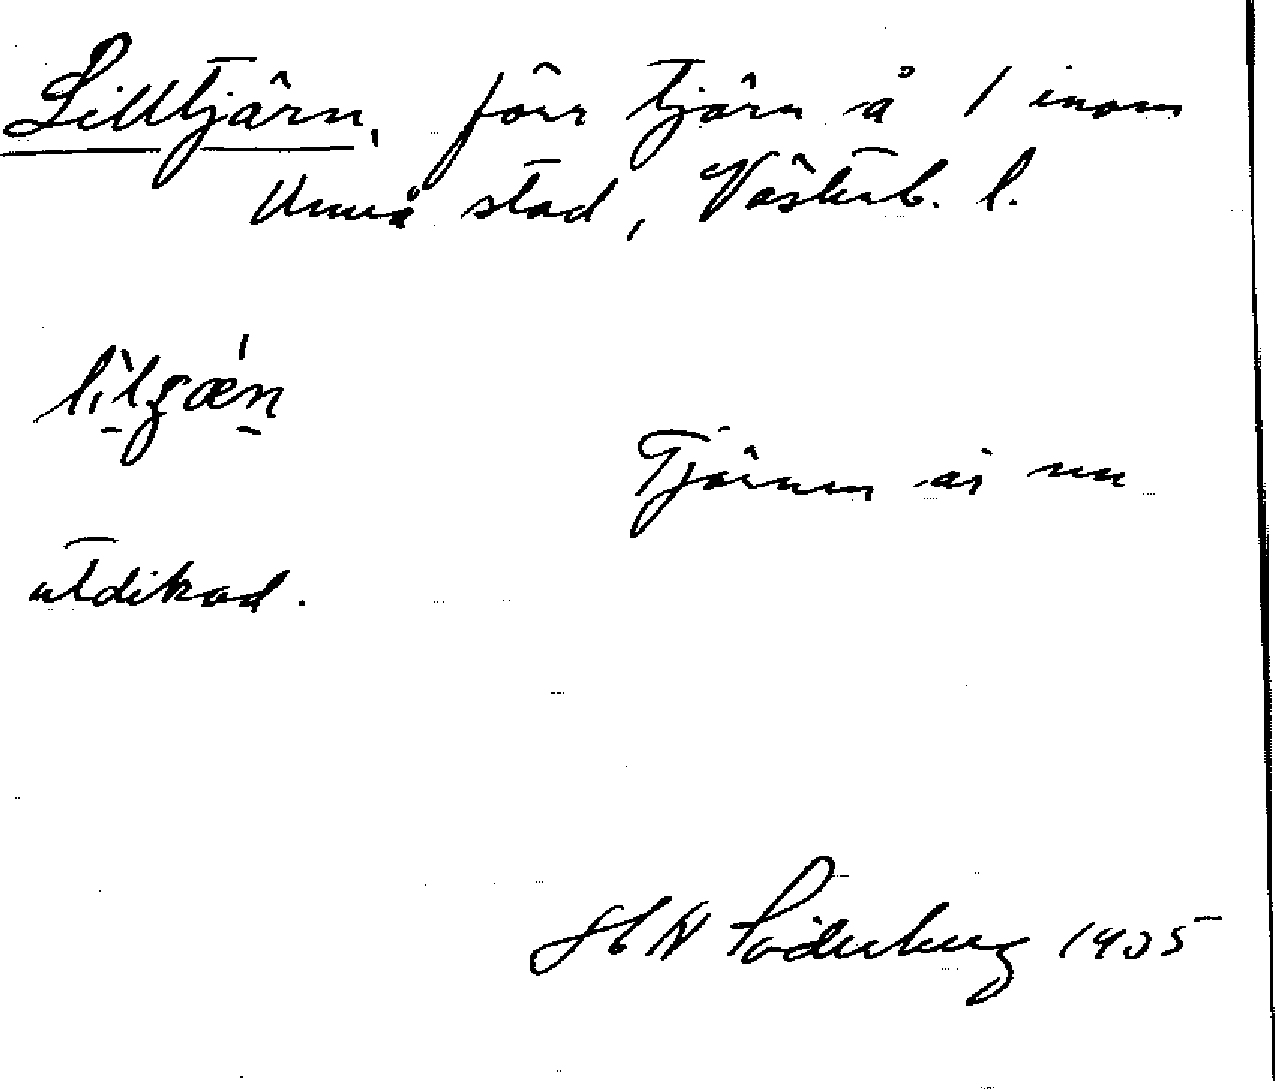 Lilltjärn, förr tjärn å 1 inom
Umeå stad, Västerb. l.
Tjärnen är nu
utdikad.
H W Söderberg 1935